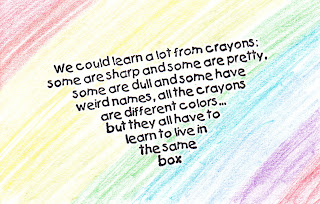 We could learn a lot from crayons:
some are sharp and some are pretty,
some are dull and some have
weird names, all the crayons
are different colors...
but they all have to
learn to live in
the same
box